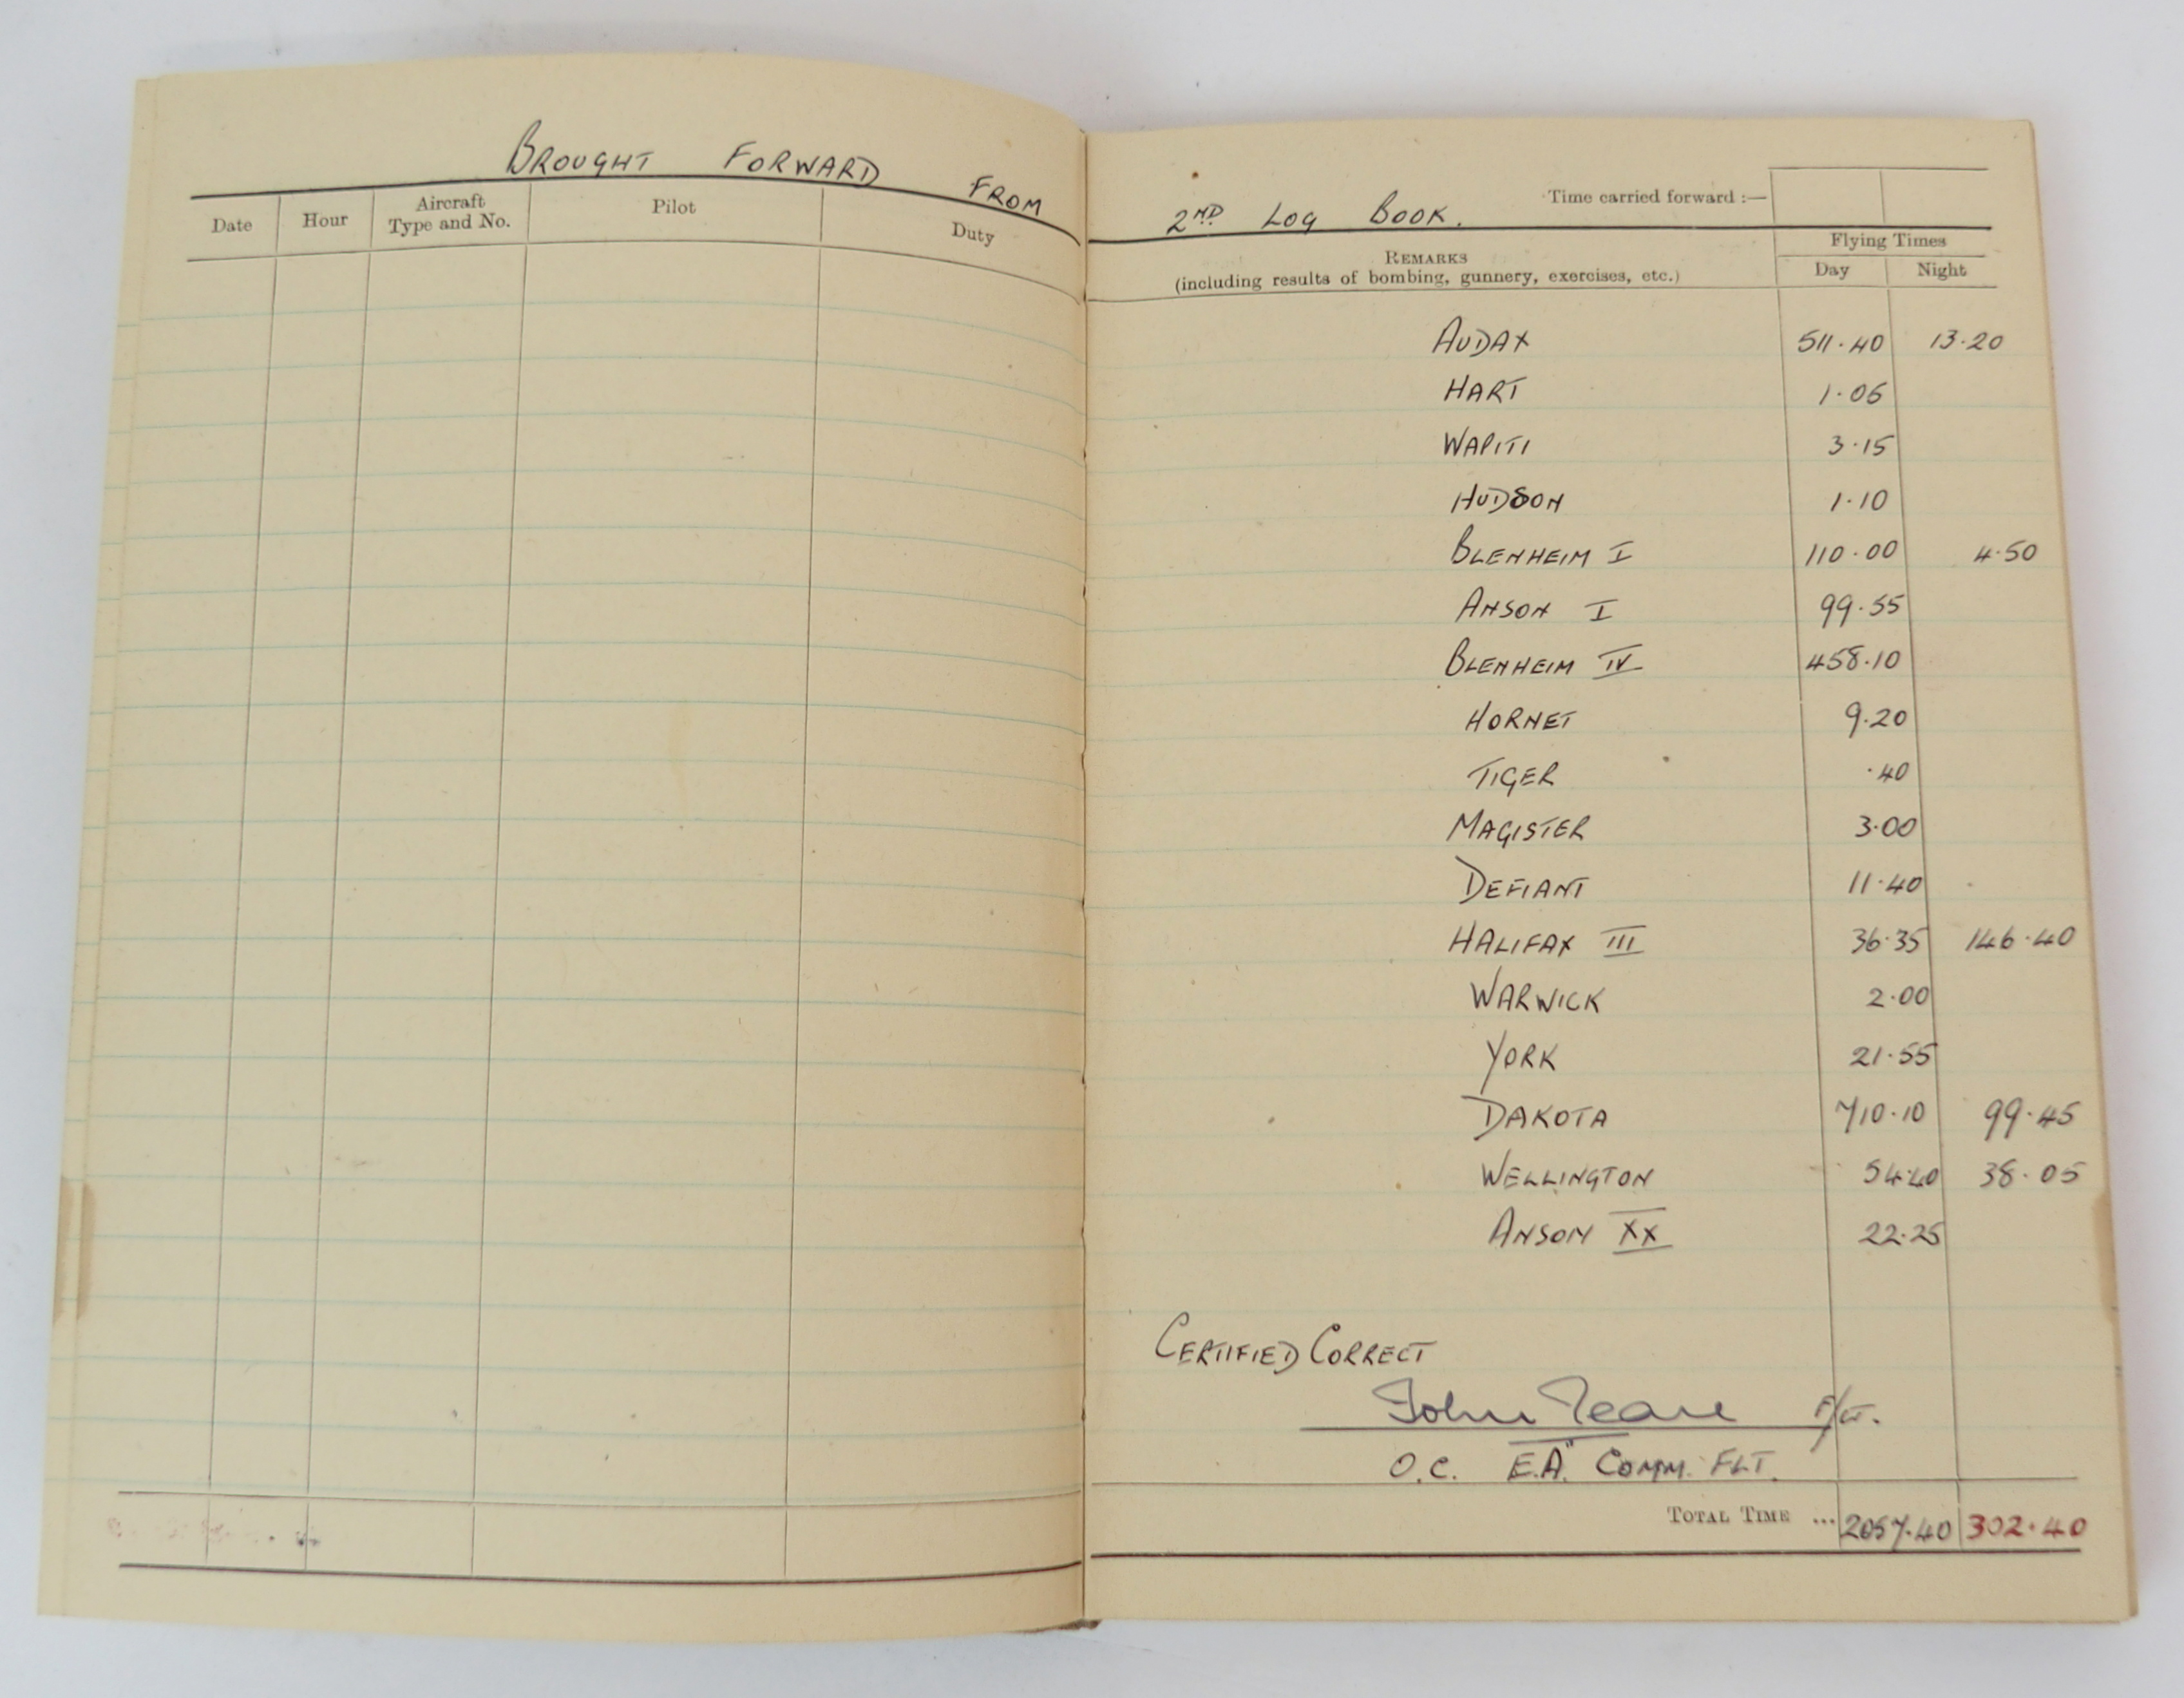 BROUGHT FORWARD FROM
Date Hour Aircraft Type and No. Pilot Duty
2ND LOG BOOK.
Time carried forward :—
REMARKS
(including results of bombing, gunnery, exercises, etc.)
Flying Times
Day Night
AUDAX 511.40 13.20
HART 1.05
WAPITI 3.15
HUDSON 1.10
BLENHEIM I 110.00 4.50
ANSON I 99.55
BLENHEIM IV 458.10
HORNET 9.20
TIGER .40
MAGISTER 3.00
DEFIANT 11.40
HALIFAX III 36.35 146.40
WARWICK 2.00
YORK 21.55
DAKOTA 710.10 99.45
WELLINGTON 54.40 38.05
ANSON XX 22.25
CERTIFIED CORRECT
John Teare F/LT.
O.C. "E.A." COMM. FLT.
TOTAL TIME ... 2057.40 302.40